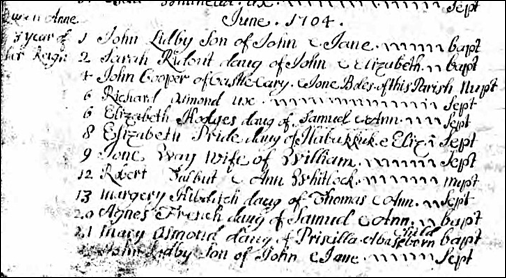 June. 1704.
Queen Anne
3 year of 1 John Lidby Son of John & Jane. bapt
her Reign 2 Sarah Ridout daug of John & Elizabeth. bapt
4 John Cooper of Castle Cary. & Jone Boles of this Parish Nupt
6 Richard Osmond ux. Sept
6 Elizabeth Hodges daug of Samuel & Ann. Sept
8 Elizabeth Pride daug of Habukkuk & Eliz: Sept
9 Jone Way wife of William. Sept
12 Robert & Ann Whitlock. nupt
13 Margery daug of Thomas & Ann. Sept
20 Agnes French daug of Samuel & Ann bapt
21 Mary Osmond daug of Priscilla a baseborn Child bapt
John Lidby Son of John & Jane. Sept